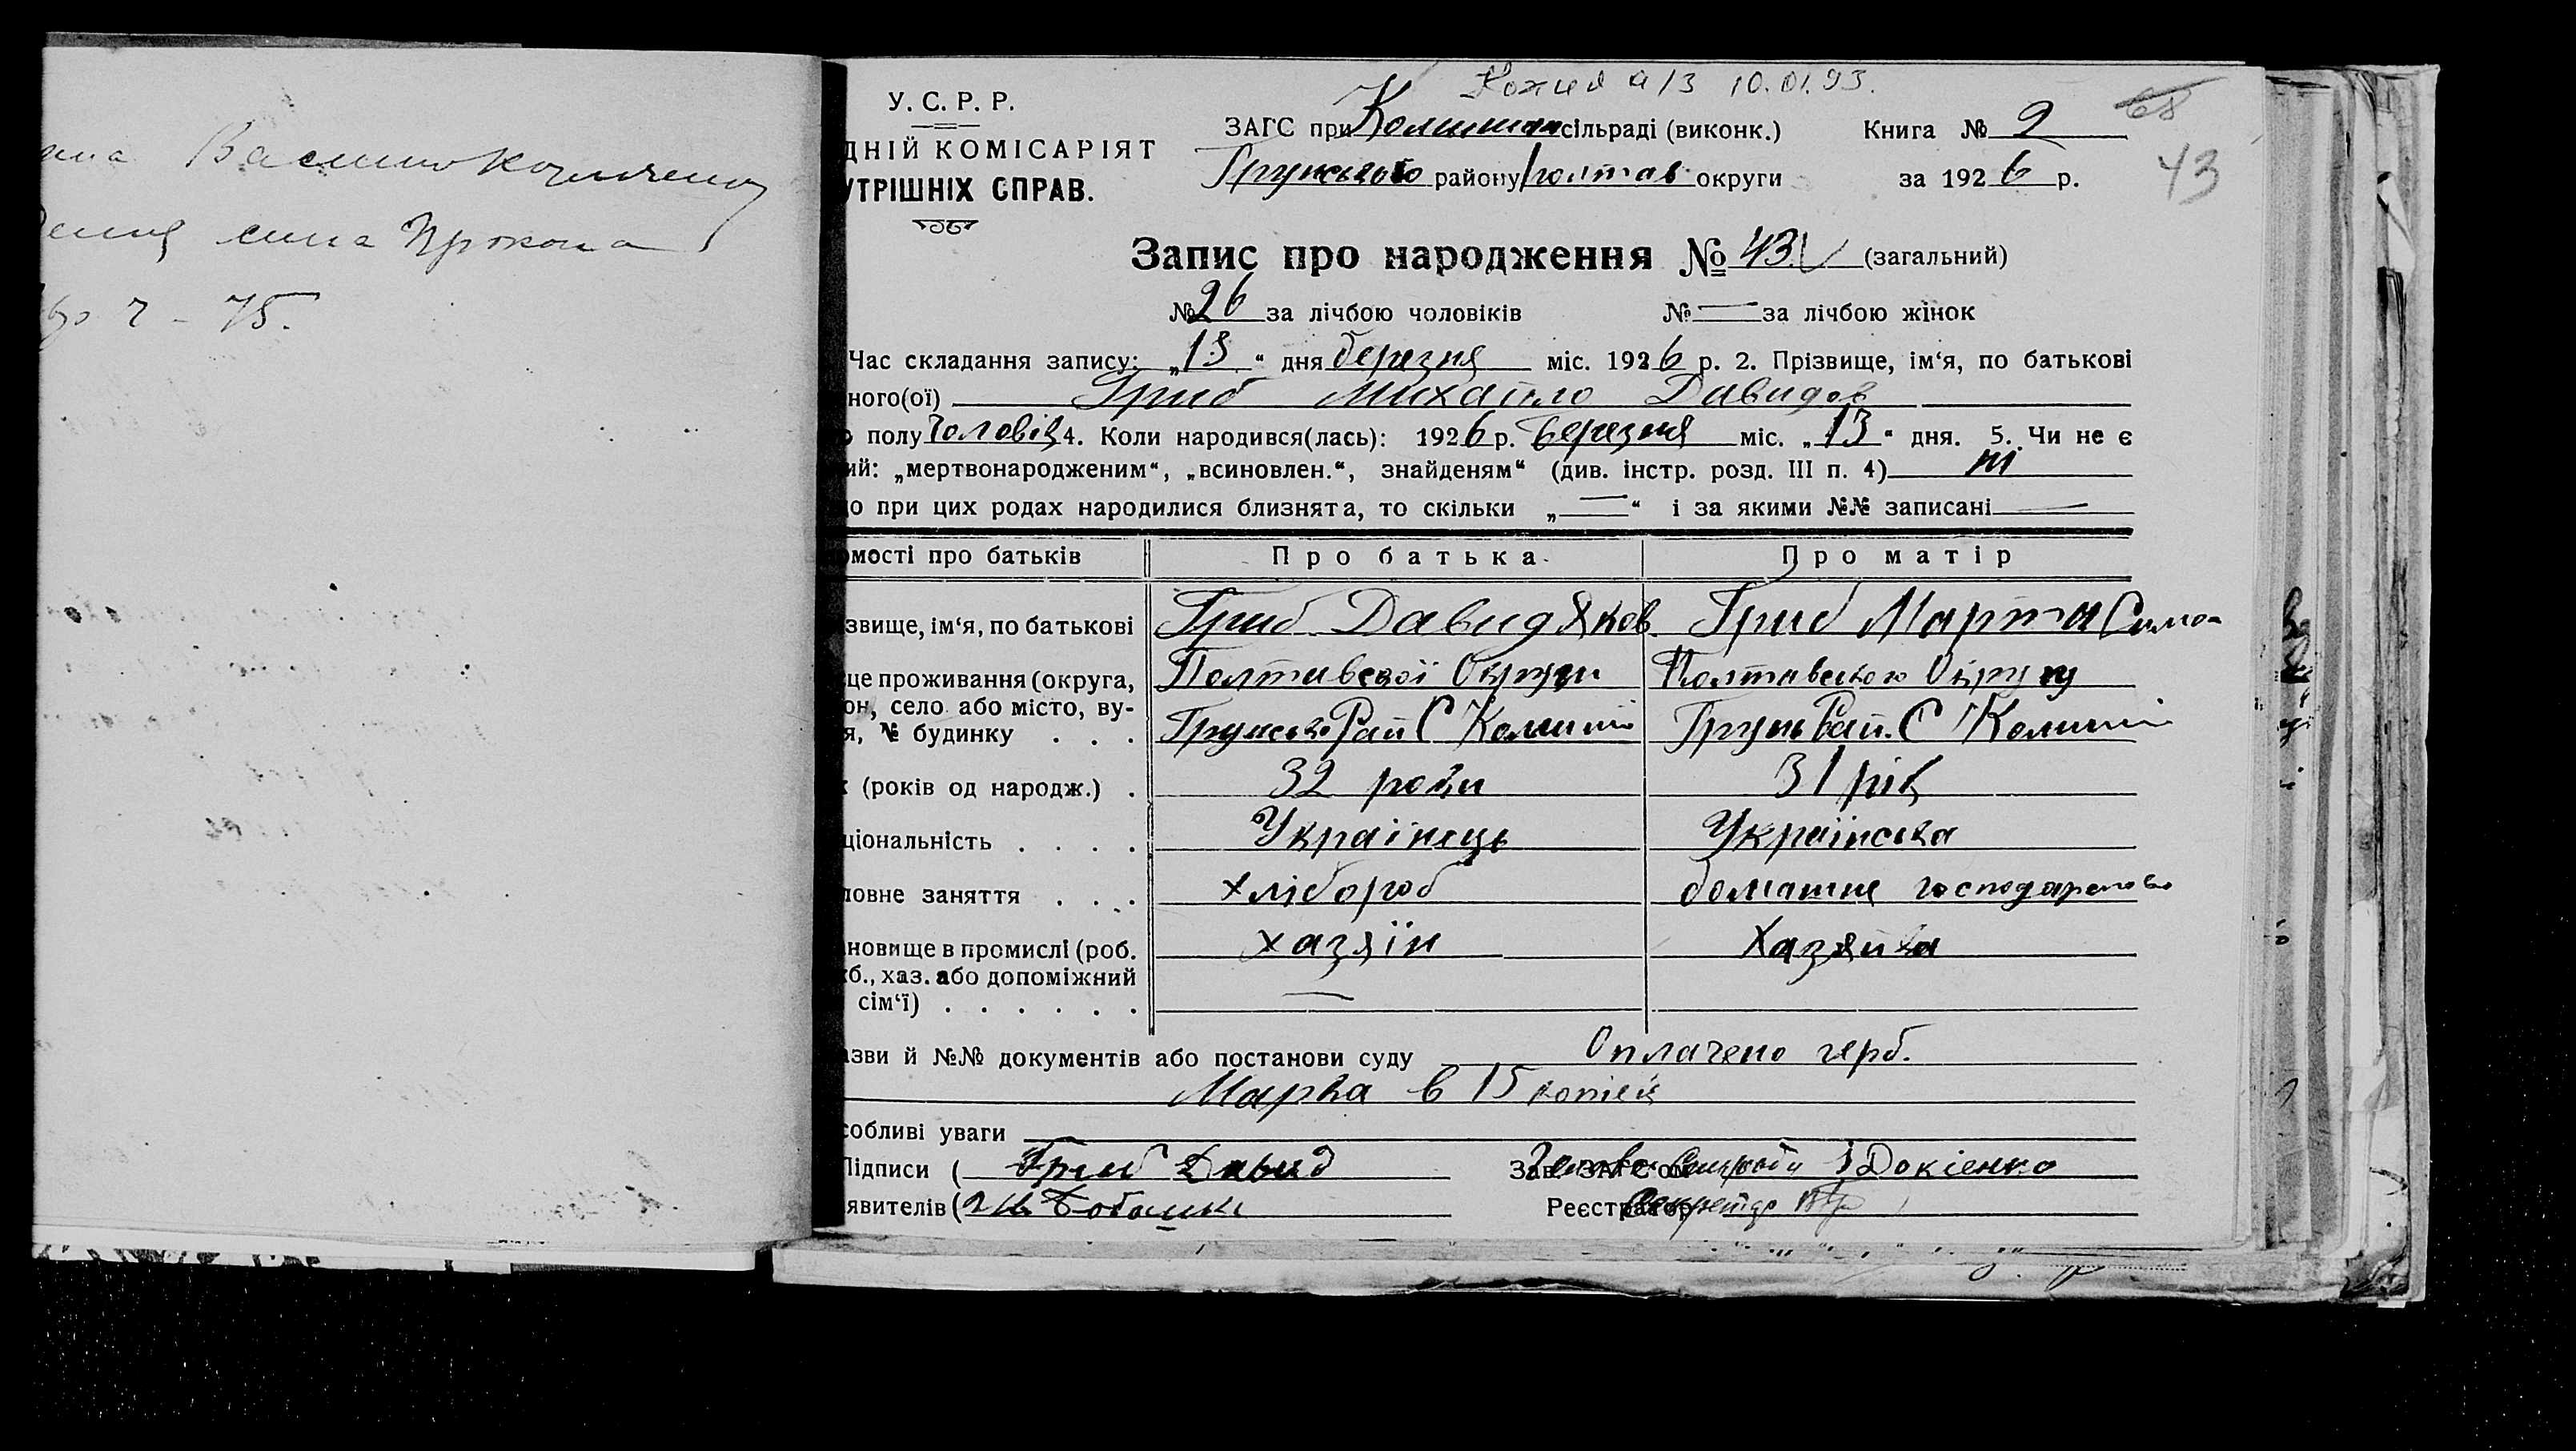 Василино
сина Прокопа
75.
Копия а/з 10.01.93.
У. С. Р. Р.
ДНІЙ КОМІСАРІЯТ
УТРІШНІХ СПРАВ.
ЗАГС при сільраді (виконк.) Книга № 2 68
Грунського району Полтав округи за 1926 р. 43
Запис про народження № 43 (загальний)
№ 26 за лічбою чоловіків № — за лічбою жінок
Час складання запису: „13“ дня березня міс. 1926 р. 2. Прізвище, ім‘я, по батькові
ного(ої) Гриб Михайло Давидов
полу Чоловіч 4. Коли народився(лась): 1926 р. Березня міс. „13“ дня. 5. Чи не є
ий: „мертвонародженим“, „всиновлен.“, знайденям“ (див. інстр. розд. III п. 4) ні
о при цих родах народилися близнята, то скільки „—“ і за якими №№ записані —
омості про батьків Про батька Про матір
звище, ім‘я, по батькові Гриб Давид Яков Гриб Марта Симо-
це проживання (округа, Полтавської Округи Полтавською Округу
он, село або місто, ву-
я, № будинку . . . Грунсько Рай С Колишні Грунь Рай. С Колишні
(років од народж.) . 32 роки 31 рік
ціональність . . . . Українець Українська
ловне заняття . . . хлібороб домашне господарство
новище в промислі (роб. хазяїн Хазяйка
б., хаз. або допоміжний
сім‘ї) . . . . . . —
азви й №№ документів або постанови суду Оплачено герб.
Марка в 15 копієк
собливі уваги
Підписи ( Гриб Давид Зав. ЗАГС‘ом Голова Сільради Докіенко
явителів ( Реєстратор Секретар